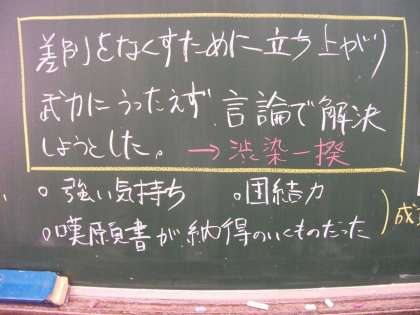 差別をなくすために立ち上がり
武力にうったえず 言論で解決
しようとした。 → 渋染一揆
○ 強い気持ち ○団結力
○嘆願書が納得のいくものだった
成